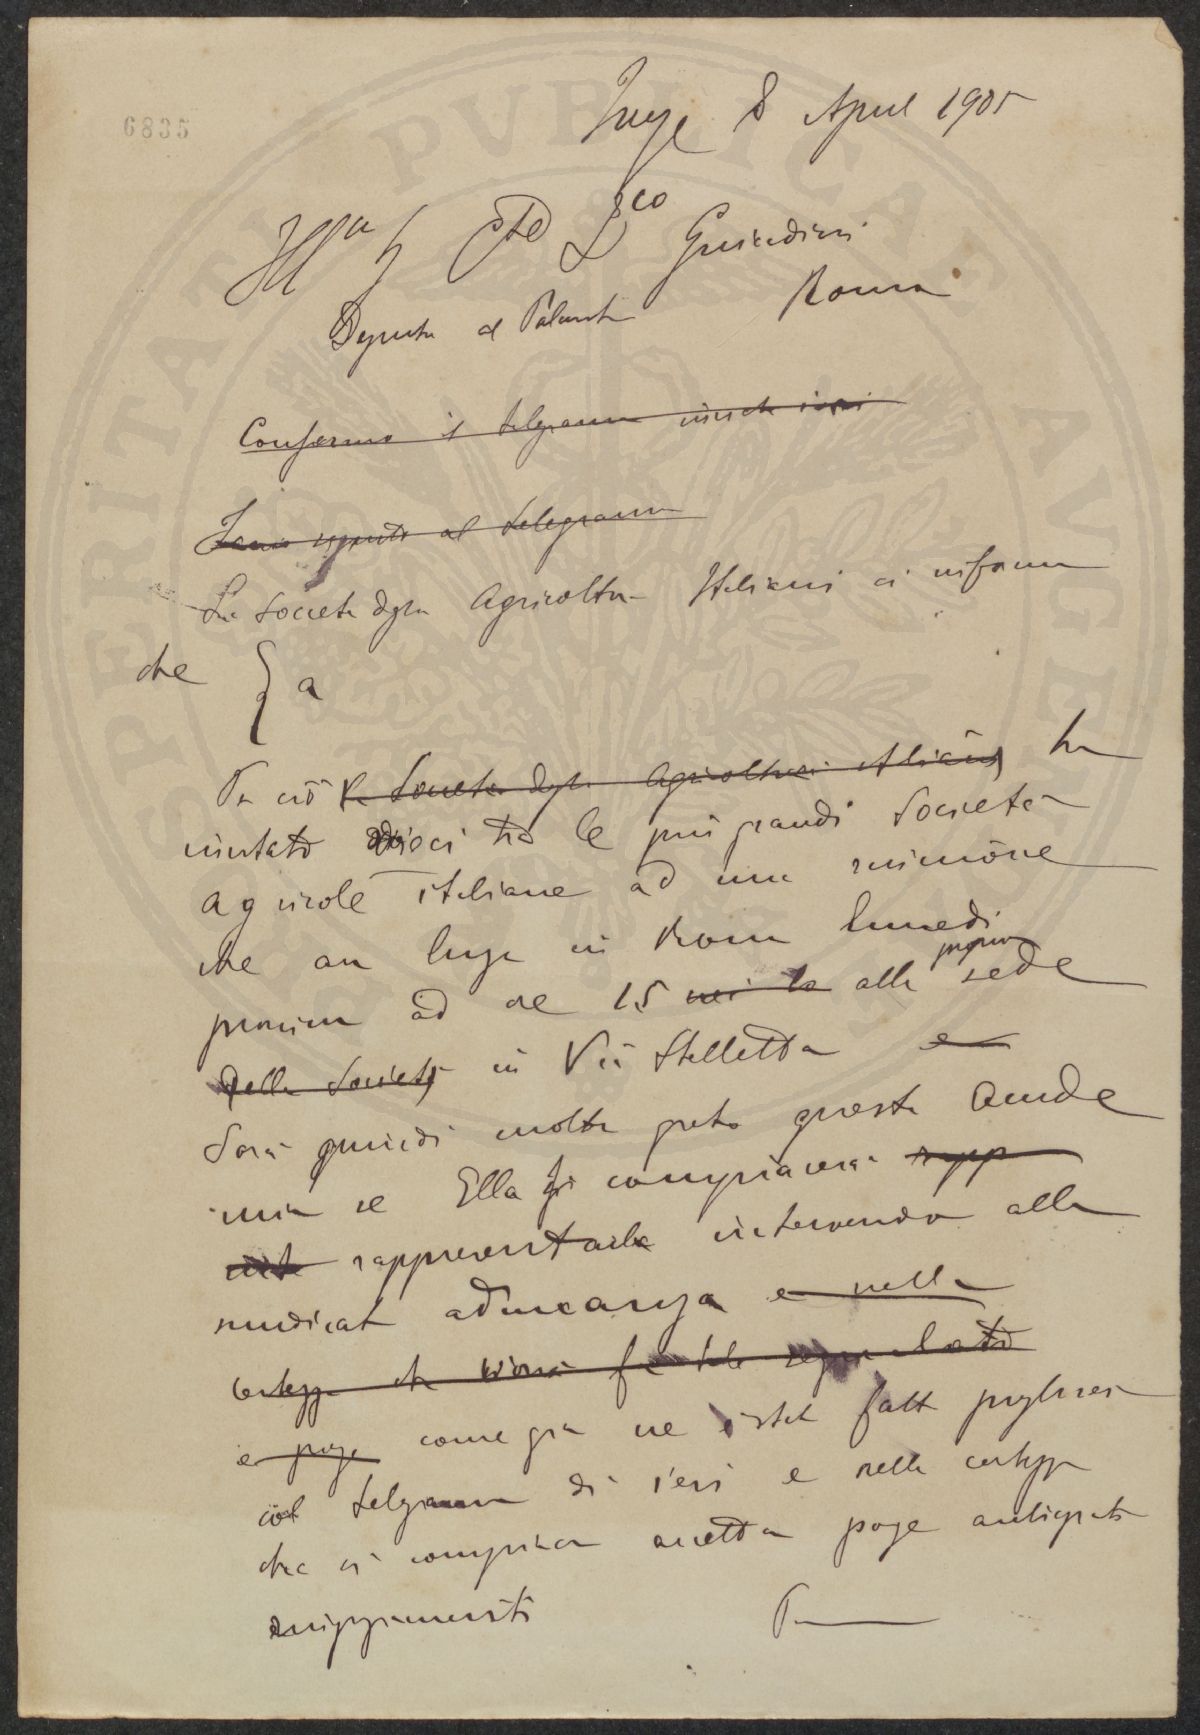 6835
8 April 1905
Ill.mo Sg Cte Fco Guicciardini
Deputato al Parlamento Roma
Confermo il telegramma inviato ieri
Facendo seguito al telegramma
La Società degli Agricoltori Italiani ci informa
che { a
Per ciò la Società degli Agricoltori italiani, ha
invitato dieci tra le più grandi Società
agricole italiane ad una riunione
che avrà luogo in Roma lunedì
prossimo ad ore 15 nei lo alla propria sede
della Società in Via Stelletta e
Sarà quindi molto grata questa Azienda
mia se Ella si compiacerà rapp
rappresentarla intervenendo alla
indicata adunanza e nella
certezza che verrà
e porge come già ne è stata fatta preghiera
col telegramma di ieri e nella certezza
che si compiacerà accettare porge anticipati
ringraziamenti